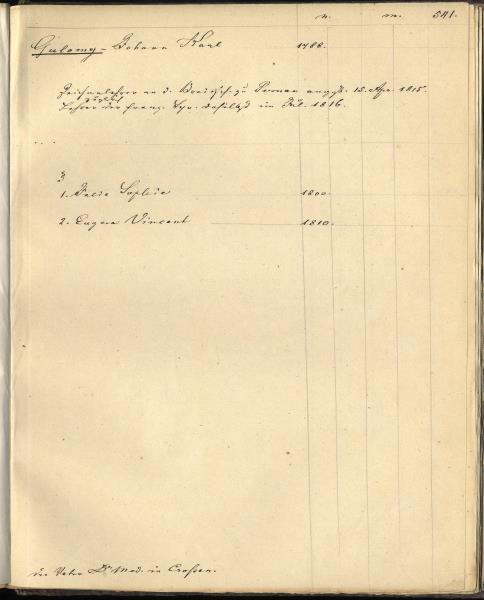 n. m. 541.
Gulomy - Johann Karl 1788.
Zeichenlehrer an d. Kreissch. zu Pernau angest. 15. Apr. 1815.
zugleich
Lehrer der franz. Spr. daselbst im Jul. 1816.
1. Julie Sophie 1800.
2. Eugen Vincent 1810.
der Vater Dr Med. in Crossen.